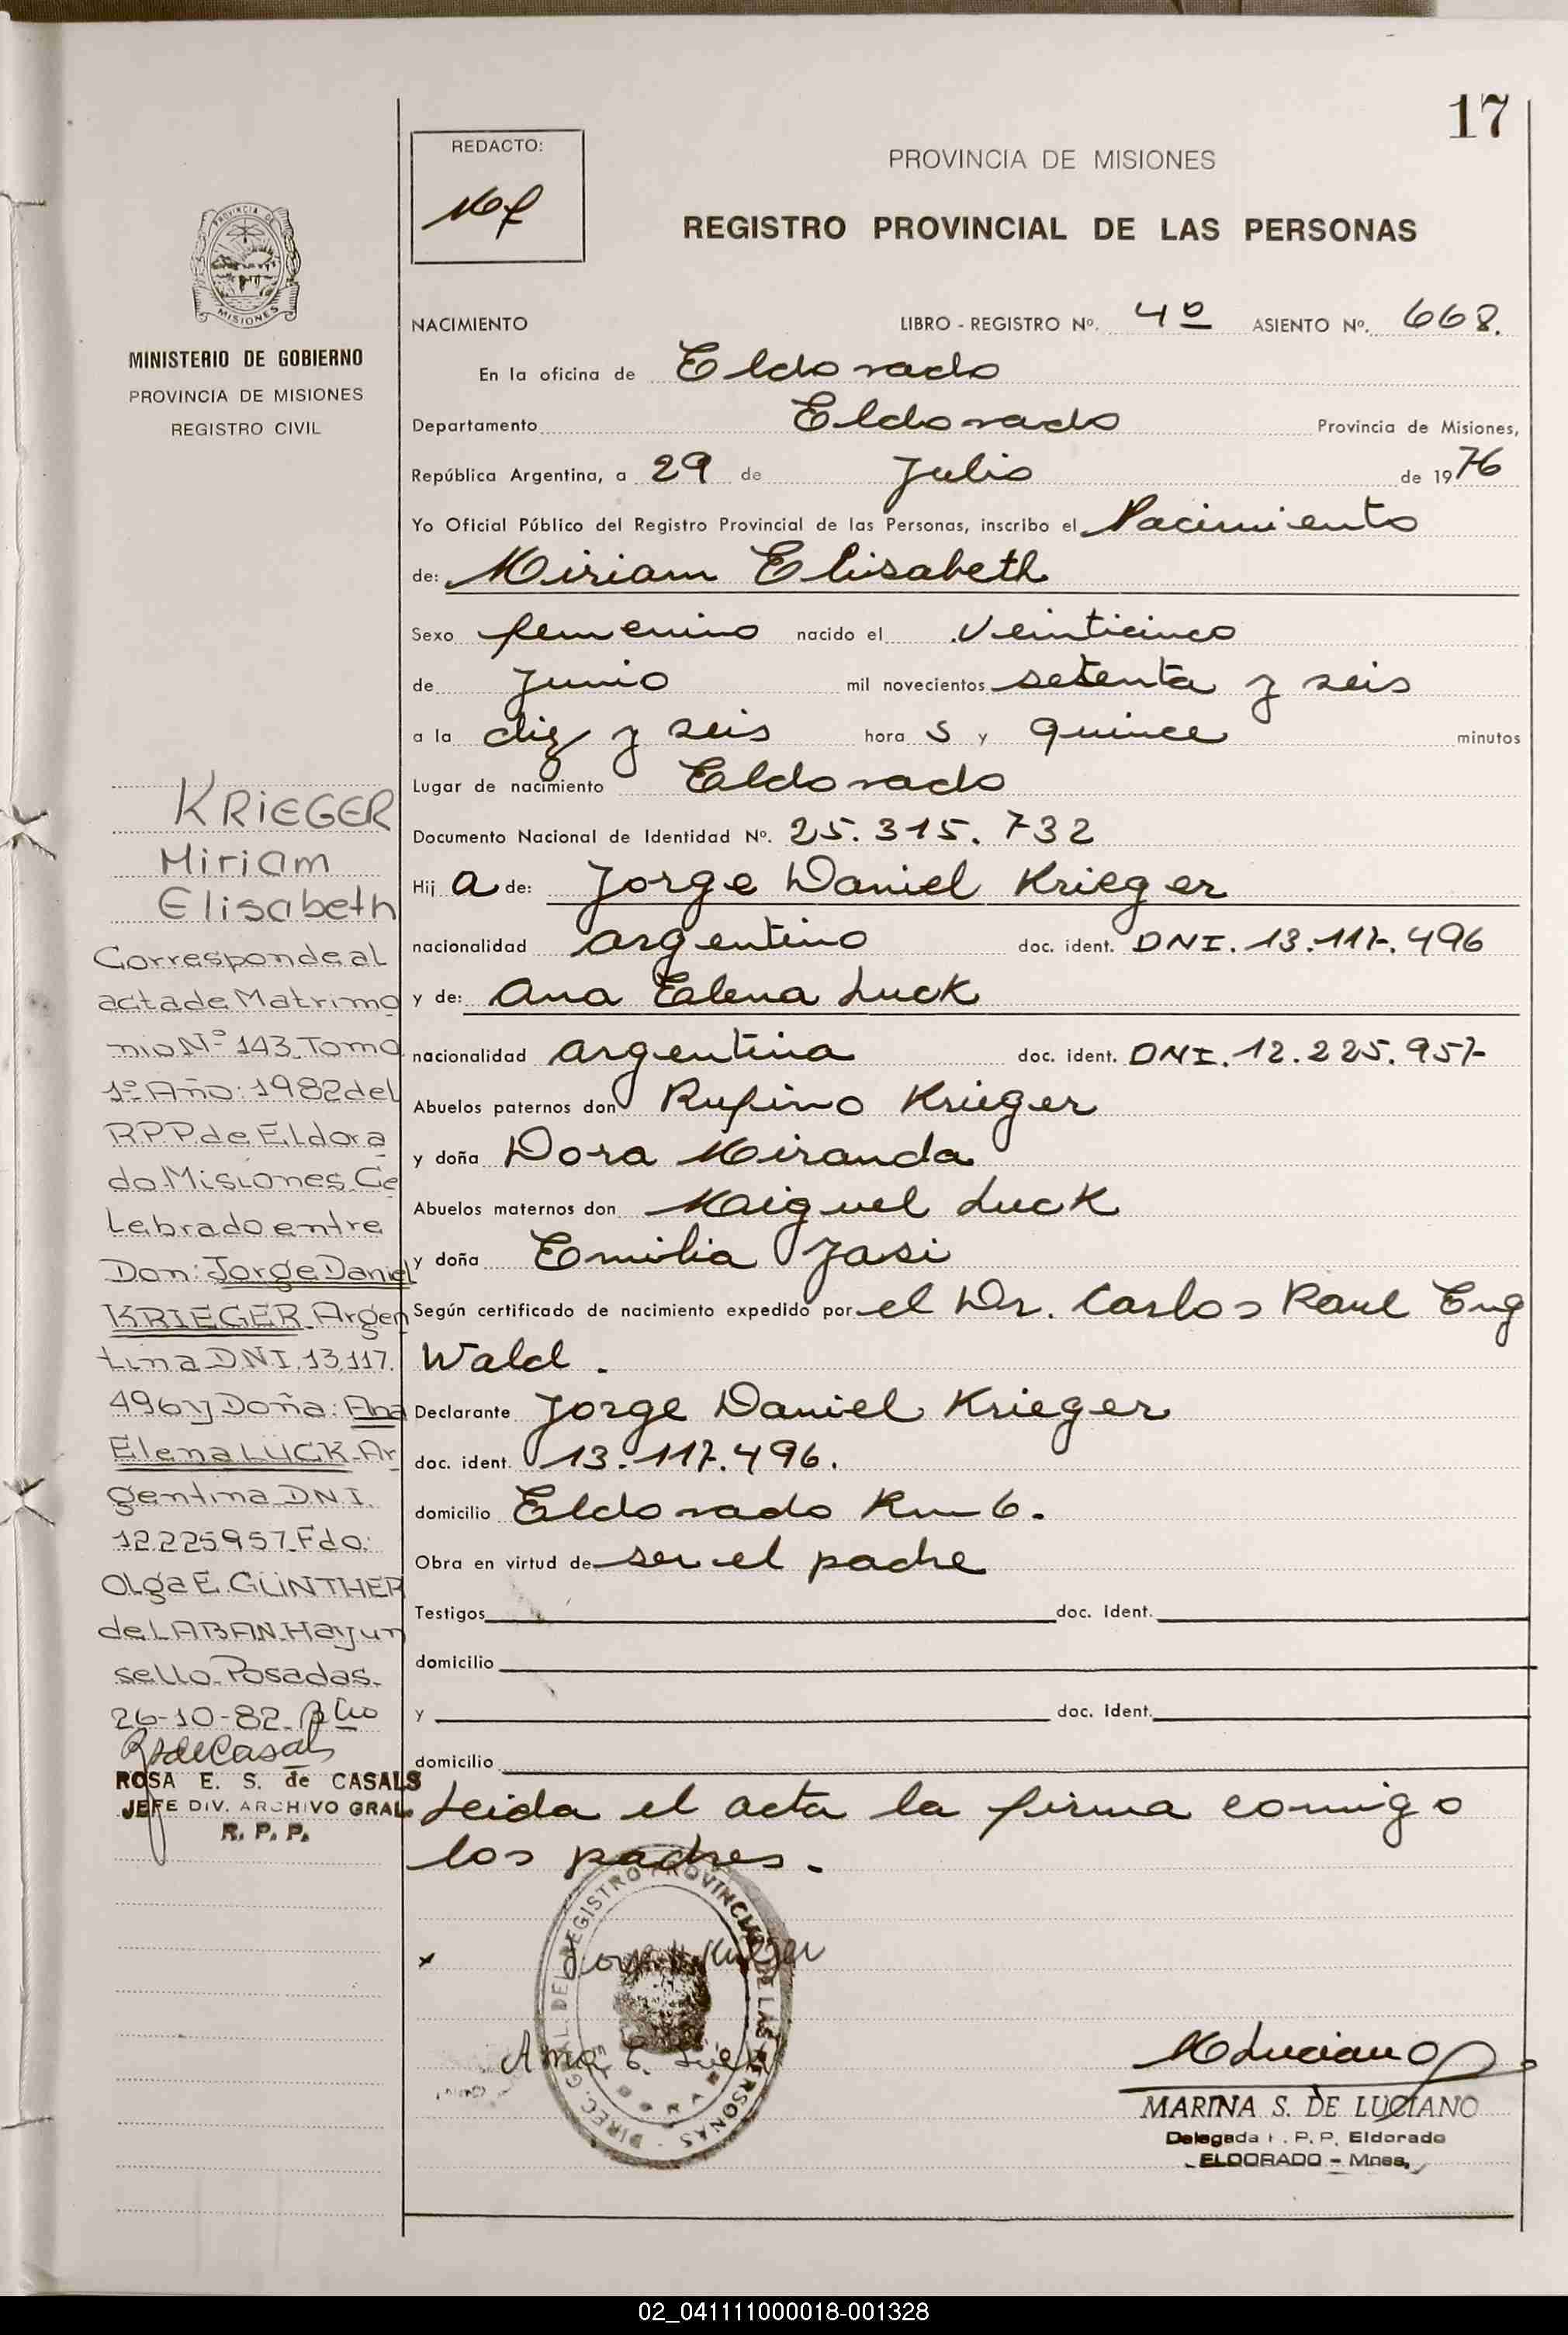 17
REDACTO:
PROVINCIA DE MISIONES
REGISTRO PROVINCIAL DE LAS PERSONAS
PROVINCIA DE
MISIONES
MINISTERIO DE GOBIERNO
PROVINCIA DE MISIONES
REGISTRO CIVIL
NACIMIENTO LIBRO - REGISTRO Nº. 4º ASIENTO Nº. 668.
En la oficina de Eldorado
Departamento Eldorado Provincia de Misiones,
República Argentina, a 29 de Julio de 1976
Yo Oficial Público del Registro Provincial de las Personas, inscribo el Nacimiento
de: Miriam Elisabeth
Sexo femenino nacido el veinticinco
de Junio mil novecientos setenta y seis
a la diez y seis hora s y quince minutos
Lugar de nacimiento Eldorado
Documento Nacional de Identidad Nº. 25.315.732
Hij a de: Jorge Daniel Krieger
nacionalidad argentino doc. ident. DNI. 13.117.496
y de: Ana Elena Luck
nacionalidad argentina doc. ident. DNI. 12.225.957
Abuelos paternos don Rufino Krieger
y doña Dora Miranda
Abuelos maternos don Miguel Luck
y doña Emilia Jasi
Según certificado de nacimiento expedido por el Dr. Carlos Raul Eng
Wald.
Declarante Jorge Daniel Krieger
doc. ident. 13.117.496.
domicilio Eldorado Km 6.
Obra en virtud de ser el padre
Testigos doc. ident.
domicilio
y doc. ident.
domicilio
Leida el acta la firma comigo
los padres.
KRIEGER
Miriam
Elisabeth
Corresponde al
acta de Matrimo
nio Nº 143 Tomo
1º Año: 1982 del
RPP de Eldora
do Misiones Ce
lebrado entre
Don: Jorge Daniel
KRIEGER Argen
tina DNI 13.117.
496 y Doña: Ana
Elena LUCK Ar
gentina D.N.I.
12225957 Fdo:
Olga E. GÜNTHER
de LABAN Hay un
sello Posadas
26-10-82
RSdeCasals
ROSA E. S. de CASALS
JEFE DIV. ARCHIVO GRAL.
R. P. P.
x Jorge D Krieger
Ana E. Luck
DIREC. GRAL. DEL REGISTRO PROVINCIAL DE LAS PERSONAS
M Luciano
MARINA S. DE LUCIANO
Delegada R. P. P. Eldorado
ELDORADO - Mnes.
02_041111000018-001328